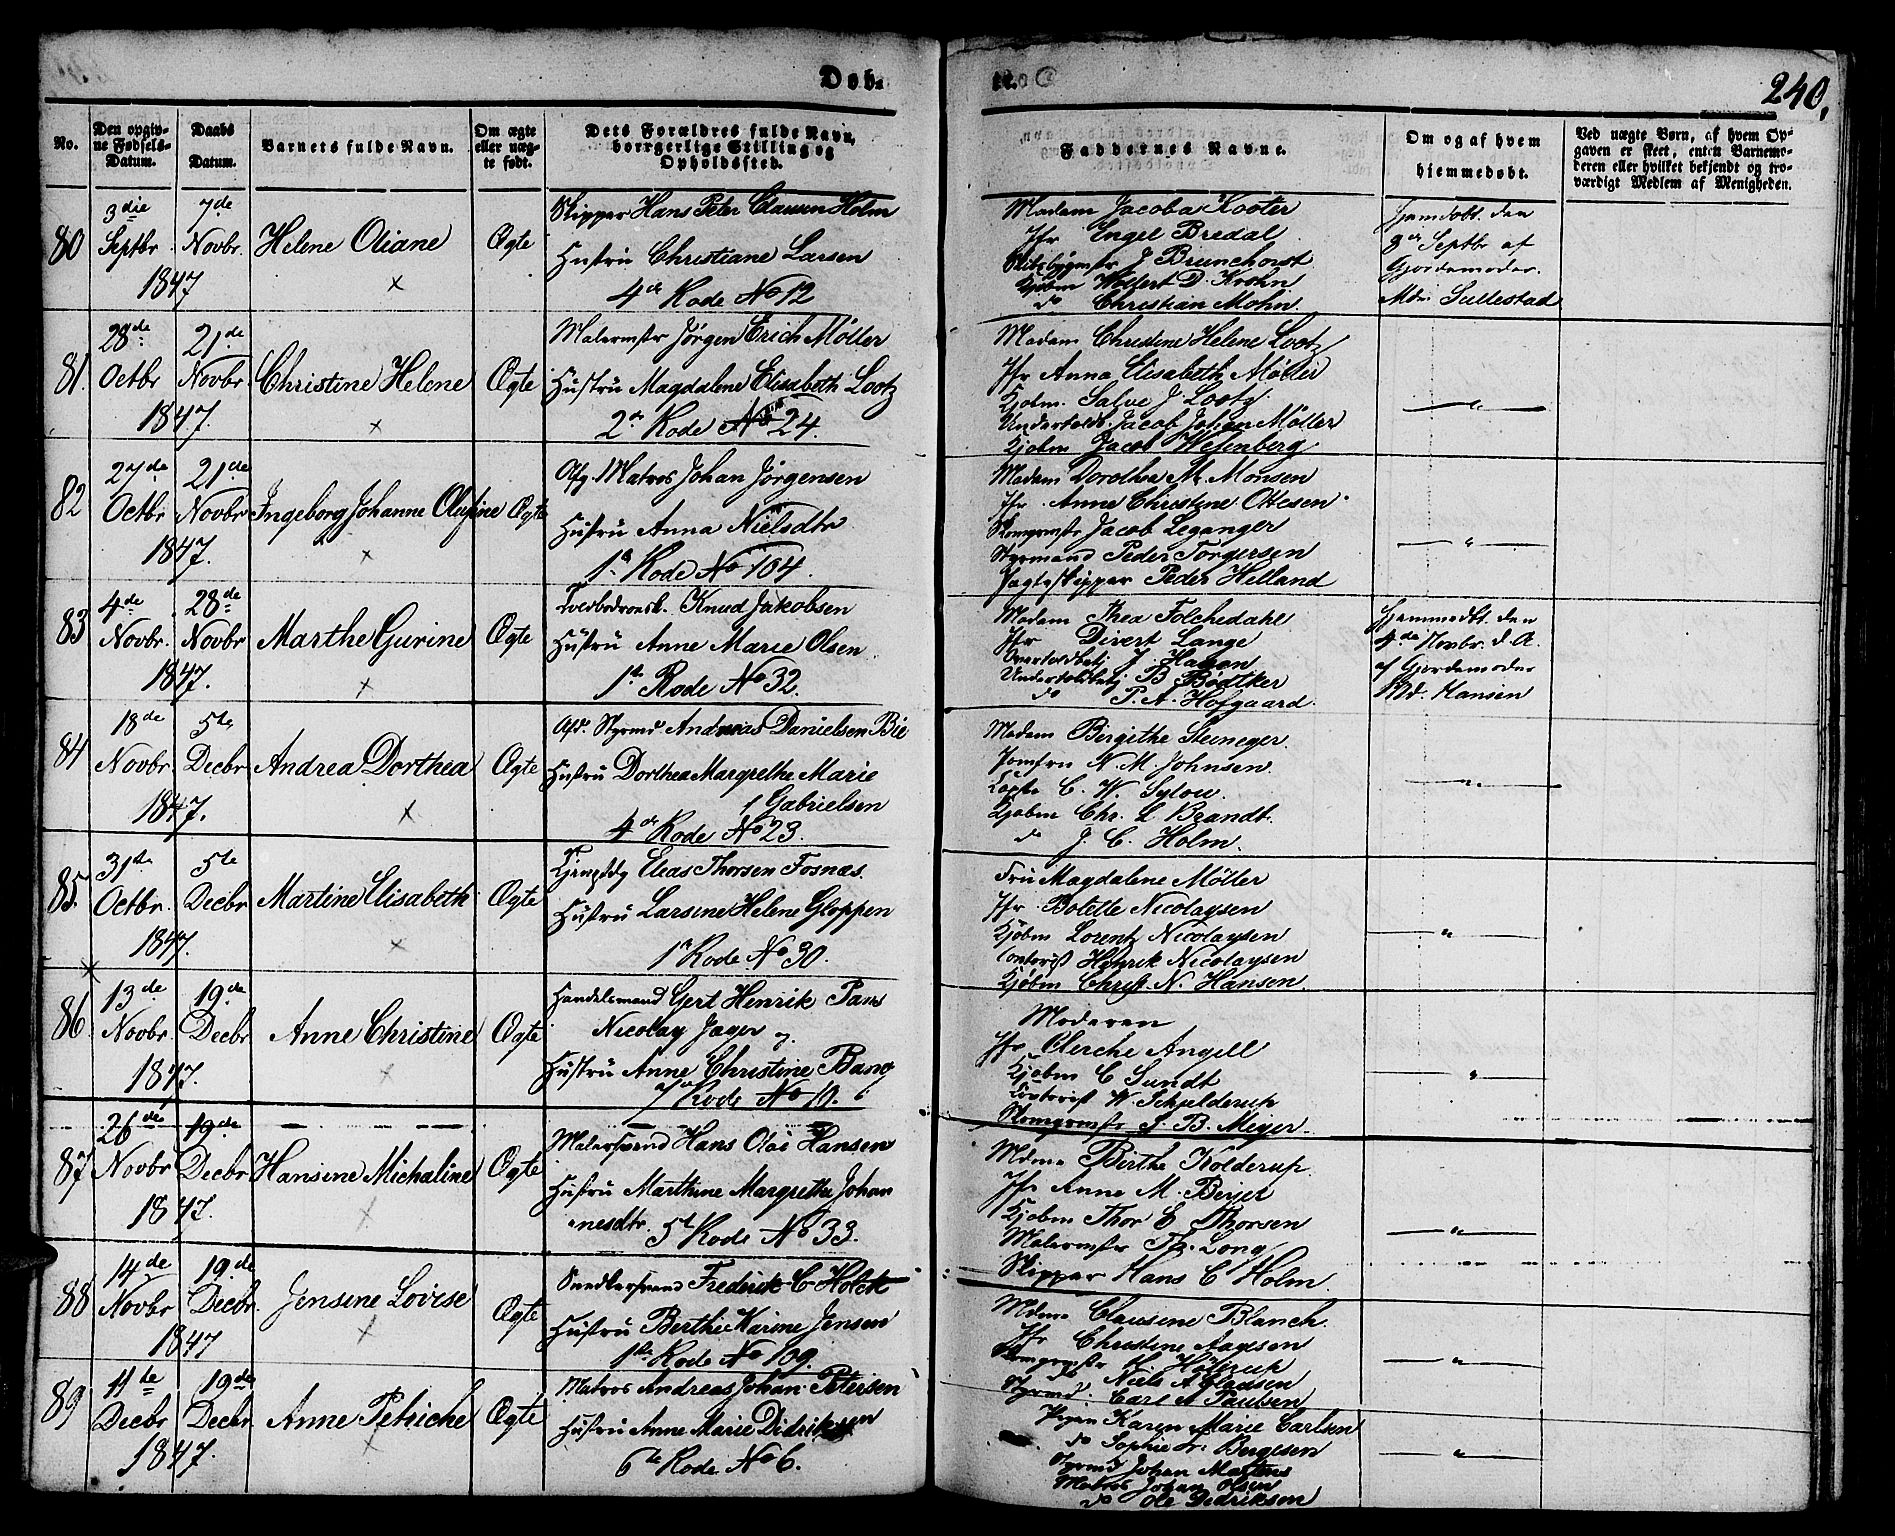 Døb.
240.
No.
Den opgiv-
ne Fødsels-
Datum.
Daabs
Datum.
Barnets fulde Navn.
Om ægte
eller uæg-
te født.
Dets Forældres fulde Navn,
borgerlige Stilling og
Opholdssted.
Faddernes Navne.
Om og af hvem
hjemmedøbt.
Ved uægte Børn, af hvem Op-
gaven er skeet, enten Barnemo-
deren eller hvilket bekjendt og tro-
værdigt Medlem af Menigheden.
80
3die
Septbr.
1847
7de
Novbr.
Helene Oliane
Ægte
Skipper Hans Peter Clausen Holm
Hustru Christiane Larsen
4de Rode No 12
Madam Jacoba Kooter
Jfr Engel Bredal
J Brunchorst
Kjøbm Wollert D. Krohn
do Christian Mohn.
Hjemdøbt den
8de Septbr af
Gjordemoder
Mdm Sullestad
81.
28de
Octbr
1847.
21de
Novbr
Christine Helene
Ægte
Malermstr Jørgen Erich Møller
Hustru Magdalene Elisabeth Lootz
2de Rode No 24.
Madam Christine Helene Lootz
Jfr Anna Elisabeth Møller
Kjøbm. Salve J Lootz.
Undertoldb. Jacob Johan Møller
Kjøbm Jacob Wesenberg
— " —
82
27de
Octbr
1847.
21de
Novbr
Ingeborg Johanne Olufine
Ægte
Afg. Matros Johan Jørgensen
Hustru Anna Nielsdtr
1ste Rode No 104.
Madam Dorothea M. Monsen
Jfr. Anne Christine Ottesen
Skomgrmstr Jacob Leganger
Styrmand Peder Torgersen
Jagtskipper Peder Helland
— " —
83
4de
Novbr.
1847.
28de
Novbr
Marthe Gurine
Ægte
Knud Jakobsen
Hustru Anne Marie Olsen
1ste Rode No 32.
Madam Thea Folchedahl
Jfr Divert Lange
Overtoldbetj J Hagen
Undertoldbetj B Bødtker
do P. A. Hofgaard.
Hjemmedbt. den
9de Novbr. d. A.
af Gjordemoder
Md. Hansen
84
18de
Novbr.
1847.
5te
Decbr
Andrea Dorthea
Ægte
Afd. Styrmd Andreas Danielsen Bie
Hustru Dorthea Margrethe Marie
Gabrielsen
4de Rode No 23.
Madam Birgithe Steineger.
Jomfru N. M. Johnsen.
Capt. C. W. Sylow.
Kjøbm Chr. L Brandt.
do J. C. Holm.
— " —
85.
31te
Octbr.
1847.
5te
Decbr
Martine Elisabeth
Ægte
Eleas Thorsen Fosnæs.
Hustru Larsine Helene Gloppen
1ste Rode No 30.
Fru Magdalene Møller
Jfr Botelle Nicolaysen
Kjøbm Lorentz Nicolaysen
Contorist Henrik Nicolaysen
Kjøbm Christ. N. Hansen.
— " —
86.
13de
Novbr.
1847.
19de
Decbr
Anne Christine
Ægte
Handelsmand Gert Henrik Jans
Nicolay Jager og
Hustru Anne Christine Bang
7de Rode No 10.
Moderen
Jfr Clerche Angell
Kjøbm C Sundt
Contorist W. Schjelderup
Skomgrmstr S. B. Meyer.
— " —
87
26de
Novbr
1847.
19de
Decbr
Hansine Michaline
Ægte
Malersvend Hans Olai Hansen
Hustru Marthine Margrethe Johan
nesdtr. 5te Rode No 33.
Mdme Birthe Kolderup
Jfr Anne M. Beyer
Kjøbm Thor E Thorsen
Malermstr Th. Long
Skipper Hans C Holm.
— " —
88
14de
Novbr
1847
19de
Decbr.
Jensine Lovise
Ægte
Snedkersvend Frederik C Holck
Hustru Berthe Karine Jensen
1ste Rode No 109.
Mdme Clausine Blanch.
Jfr Christine Aagesen
Skomgrmstr H. Höltrup
do Niels A Claasen
Styrmd. Carl A Paulsen
— " —
89
11te
Decbr
1847.
19de
Decbr
Anne Petriche
Ægte
Matros Andreas Johan Petersen
Hustru Anne Marie Didriksen
6te Rode No 6.
Pigen Karen Marie Carlsen
do Sophie Bergesen
Styrmd Johan Martens
Matros Johan Olsen
do Ole Dedriksen
— " —